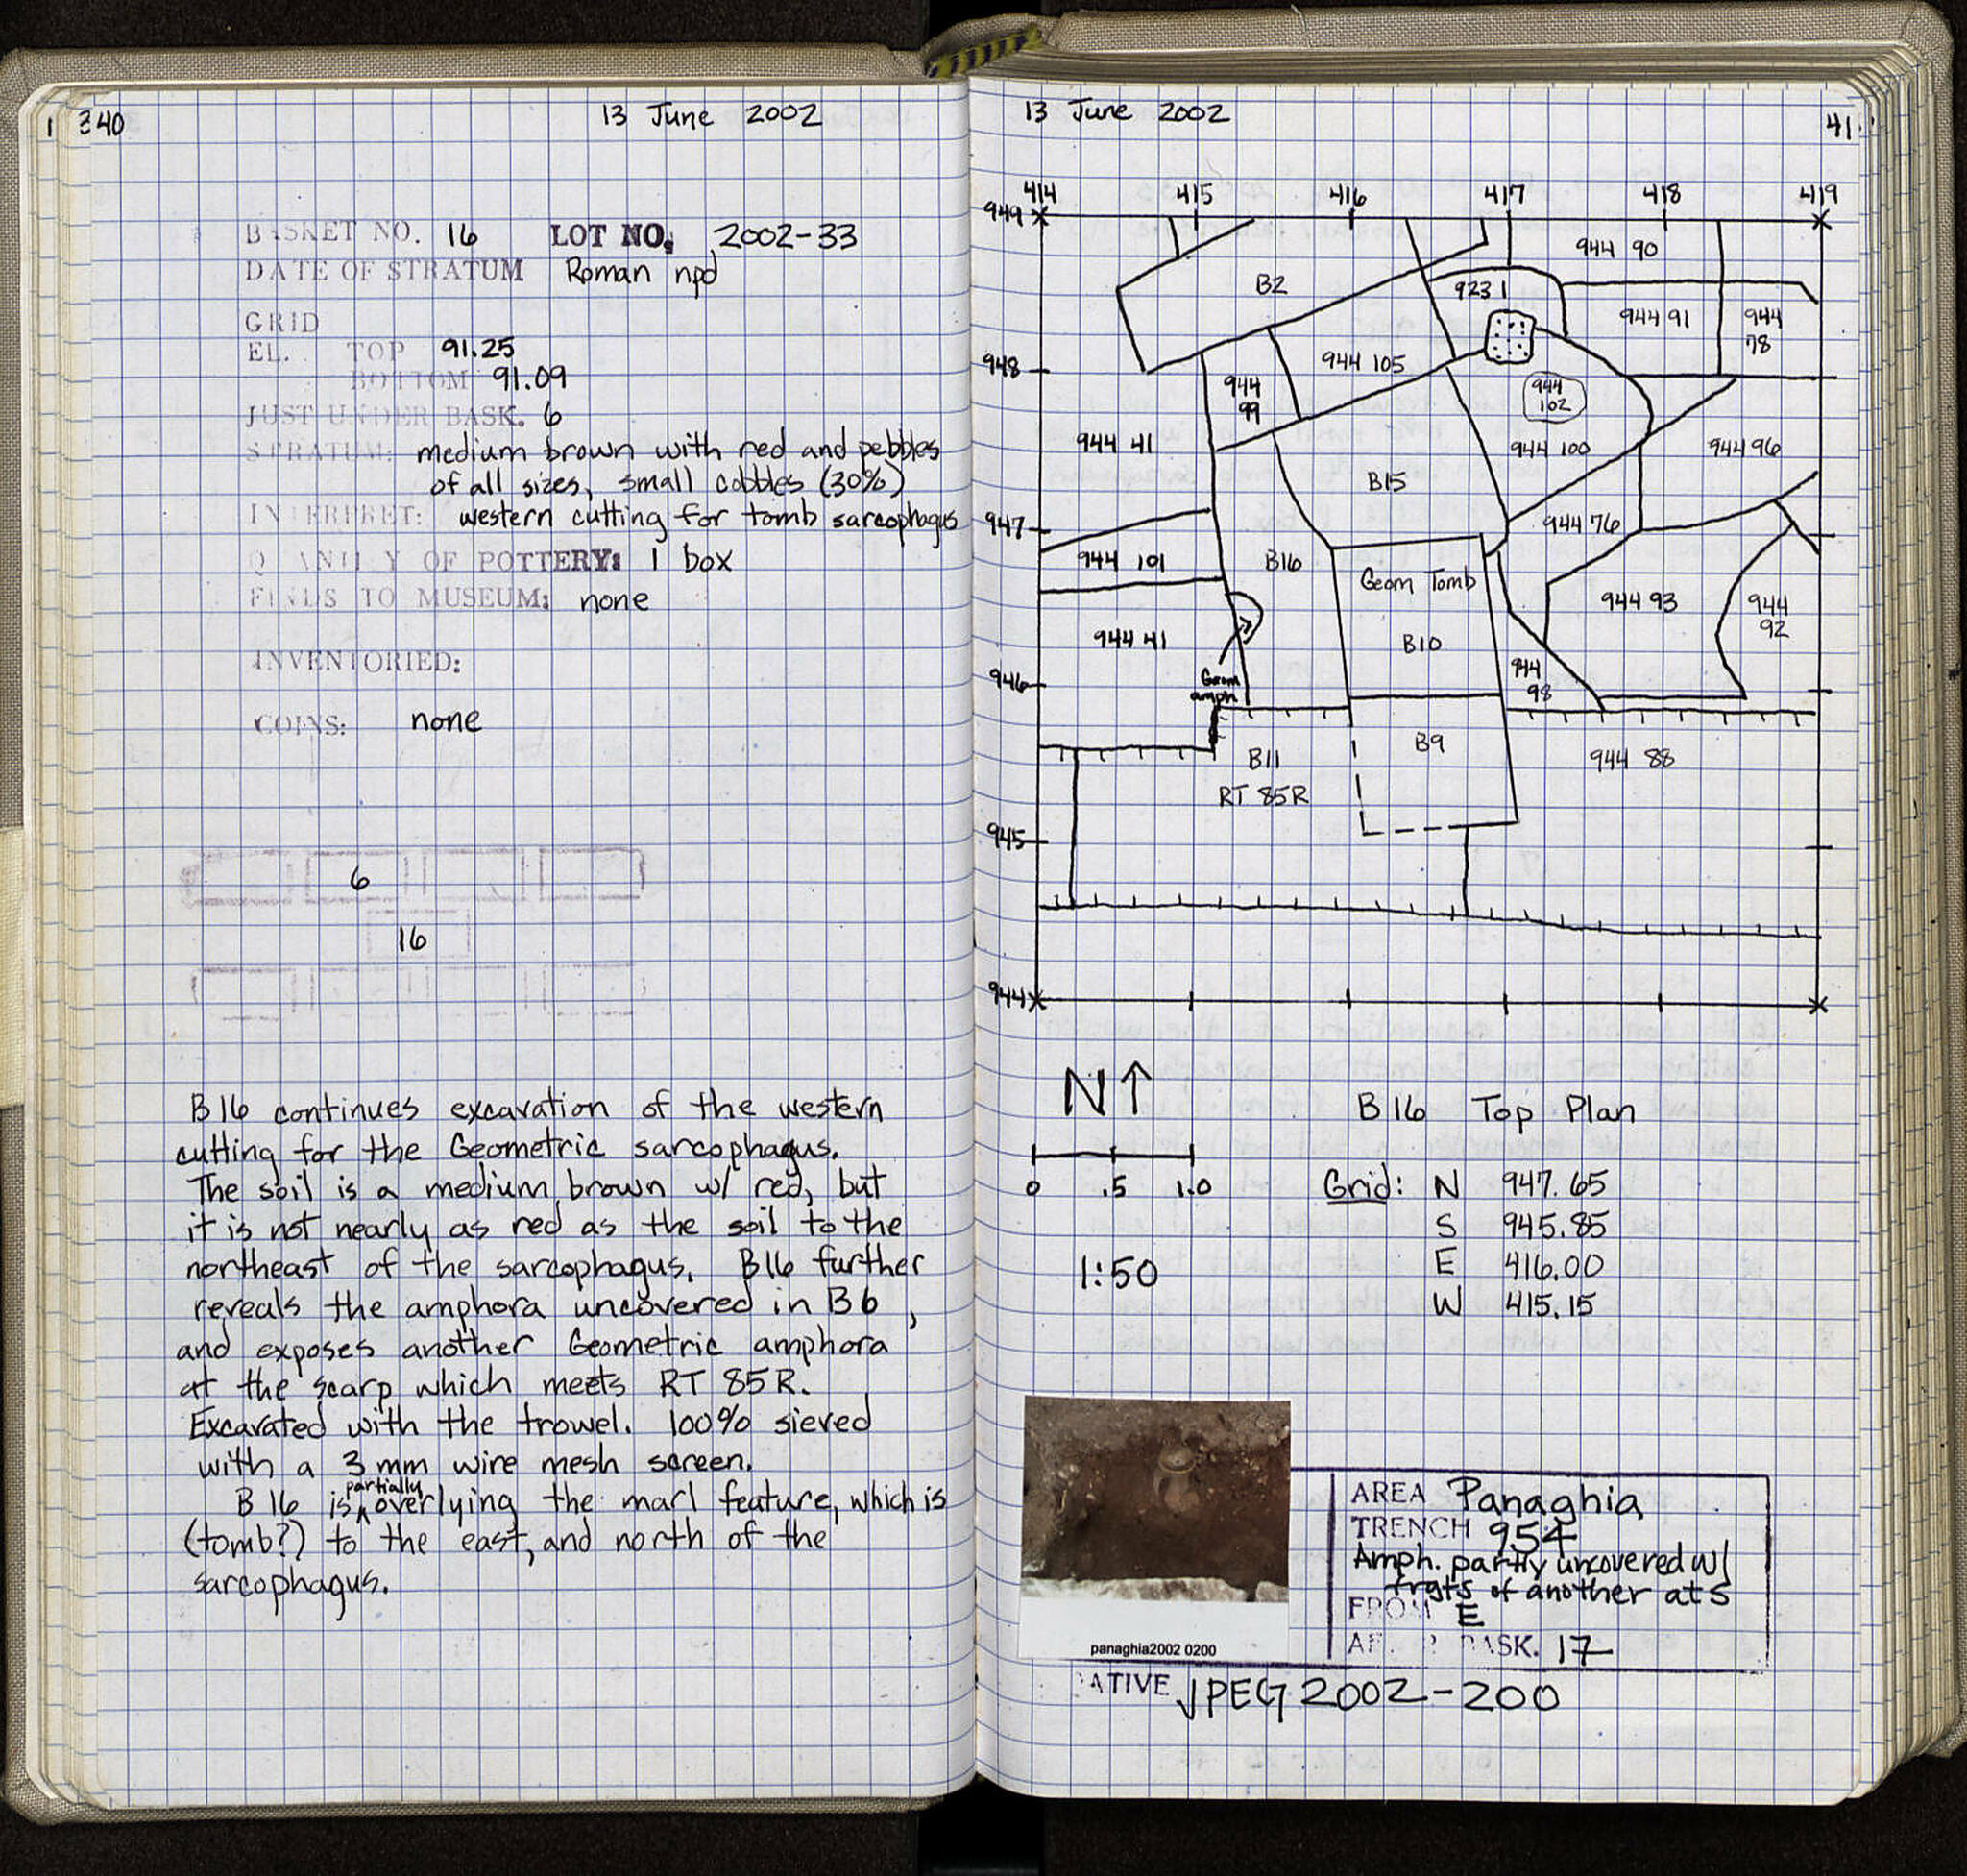 1 340
13 June 2002
BASKET NO. 16 LOT NO. 2002-33
DATE OF STRATUM Roman npd
GRID
EL. TOP 91.25
BOTTOM 91.09
JUST UNDER BASK. 6
STRATUM: medium brown with red and pebbles
of all sizes, small cobbles (30%)
INTERPRET: western cutting for tomb sarcophagus
QUANTITY OF POTTERY: 1 box
FINDS TO MUSEUM: none
INVENTORIED:
COINS: none
6
16
B16 continues excavation of the western
cutting for the Geometric sarcophagus.
The soil is a medium brown w/ red, but
it is not nearly as red as the soil to the
northeast of the sarcophagus. B16 further
reveals the amphora uncovered in B6,
and exposes another Geometric amphora
at the scarp which meets RT 85R.
Excavated with the trowel. 100% sieved
with a 3 mm wire mesh screen.
B 16 is partially overlying the marl feature, which is
(tomb?) to the east, and north of the
sarcophagus.
13 June 2002
41
414 415 416 417 418 419
949
944 90
B2
923 1
944 91
944
78
948
944 105
944
99
944
102
944 41
944 100
944 96
B15
947
944 76
944 101
B16
Geom Tomb
944 93
944
92
944 41
B10
944
98
946
Geom
amph.
B9
B11
944 88
RT 85R
945
944
N↑
B16 Top Plan
0 .5 1.0
Grid: N 947.65
S 945.85
1:50
E 416.00
W 415.15
AREA Panaghia
TRENCH 954
Amph. partly uncovered w/
frgts of another at S
FROM E
AFTER BASK. 17
panaghia2002 0200
ATIVE JPEG 2002-200